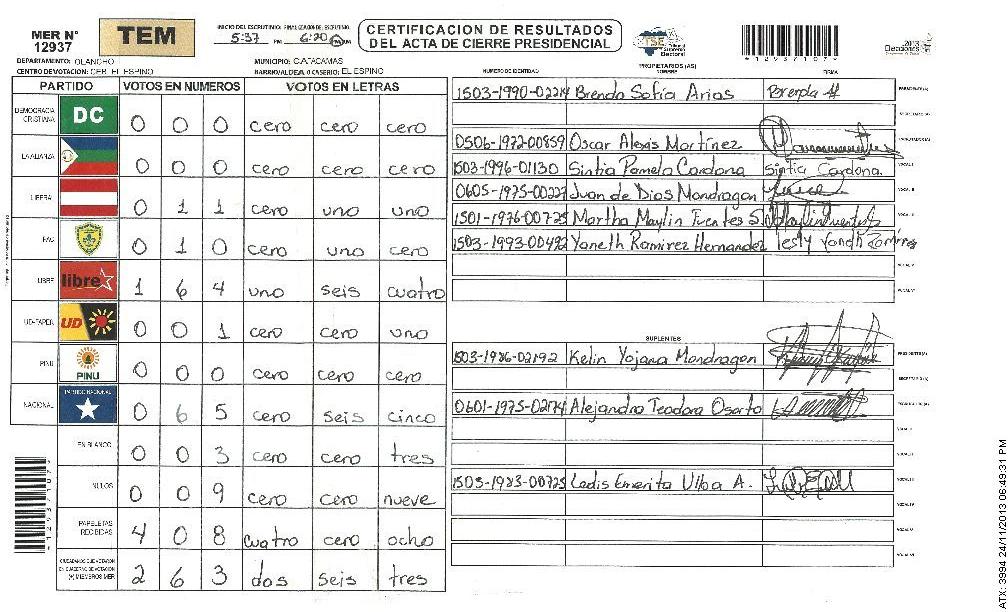 MER N° 12937
TEM
INICIO DEL ESCRUTINIO: FINALIZACION DE ESCRUTINIO:
5:37 PM 6:20 PM
CERTIFICACION DE RESULTADOS
DEL ACTA DE CIERRE PRESIDENCIAL
TSE Tribunal Supremo Electoral
2013 Elecciones
*1293710?*
DEPARTAMENTO: OLANCHO
MUNICIPIO: CATACAMAS
CENTRO DE VOTACION: CEB. EL ESPINO
BARRIO/ALDEA O CASERIO: EL ESPINO
PARTIDO VOTOS EN NUMEROS VOTOS EN LETRAS
DEMOCRACIA CRISTIANA DC 0 0 0 cero cero cero
LA ALIANZA 0 0 0 cero cero cero
LIBERAL 0 1 1 cero uno uno
PAC 0 1 0 cero uno cero
LIBRE libre 1 6 4 uno seis cuatro
UD-FAPER UD 0 0 1 cero cero uno
PINU PINU 0 0 0 cero cero cero
NACIONAL PARTIDO NACIONAL 0 6 5 cero seis cinco
EN BLANCO 0 0 3 cero cero tres
NULOS 0 0 9 cero cero nueve
PAPELETAS RECIBIDAS 4 0 8 cuatro cero ocho
CIUDADANOS QUE VOTARON EN CUADERNO DE VOTACION (+) MIEMBROS MER 2 6 3 dos seis tres
NUMERO DE IDENTIDAD PROPIETARIOS (AS) NOMBRE FIRMA
1503-1990-02214 Brenda Sofia Arias PRESIDENTE(A)
SECRETARIO(A)
0506-1972-00859 Oscar Alexis Martinez ESCRUTADOR(A)
1503-1996-01130 Sintia Pamela Cardona Sintia Cardona. VOCAL I
0605-1975-00227 Juan de Dios Mondragon VOCAL II
1501-1976-00725 Martha Maylin Fuentes S. VOCAL III
1503-1993-00492 Yaneth Ramirez Hernandez VOCAL IV
VOCAL V
VOCAL VI
SUPLENTES
1503-1986-02192 Kelin Yojana Mondragon PRESIDENTE(A)
SECRETARIO(A)
0601-1975-02174 Alejandro Teodoro Osorto ESCRUTADOR(A)
VOCAL I
VOCAL II
1503-1983-00725 Ledis Emerita Ulloa A. VOCAL III
VOCAL IV
VOCAL V
VOCAL VI
ATX: 3994 24/11/2013 06:49:31 PM